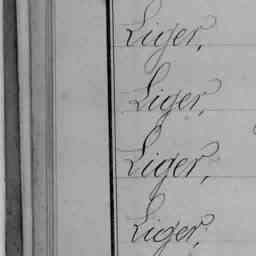 Liger,
Liger,
Liger,
Liger,